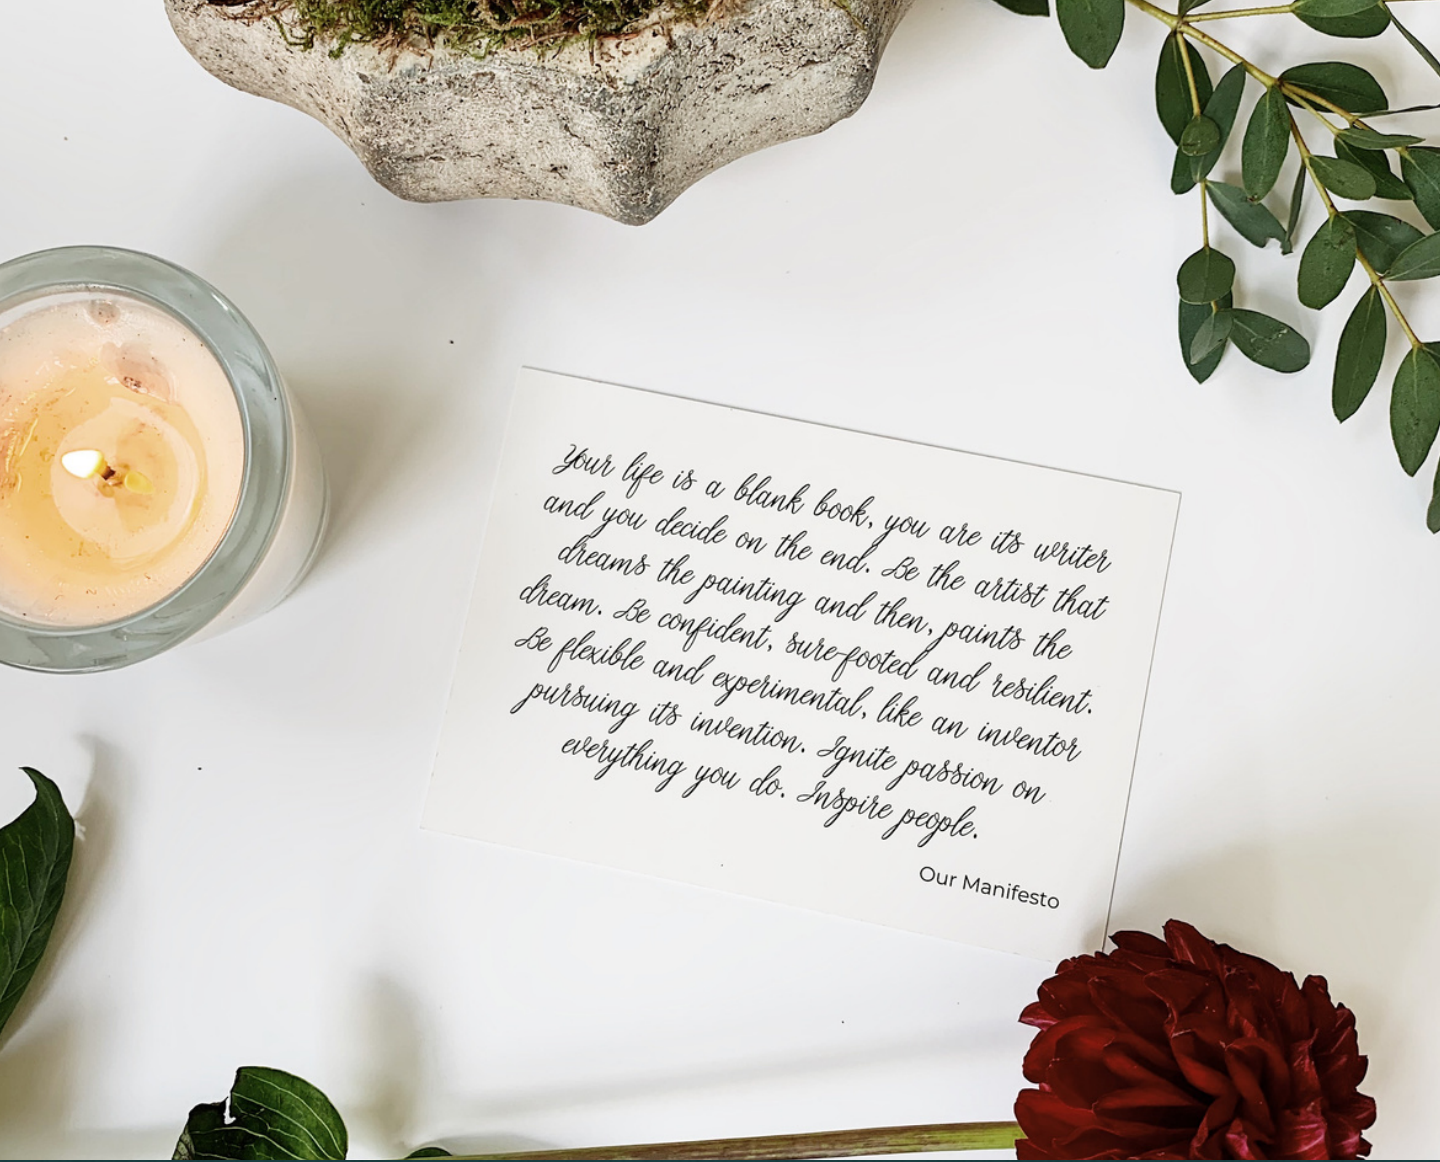 Your life is a blank book, you are its writer
and you decide on the end. Be the artist that
dreams the painting and then, paints the
dream. Be confident, sure-footed and resilient.
Be flexible and experimental, like an inventor
pursuing its invention. Ignite passion on
everything you do. Inspire people.
Our Manifesto